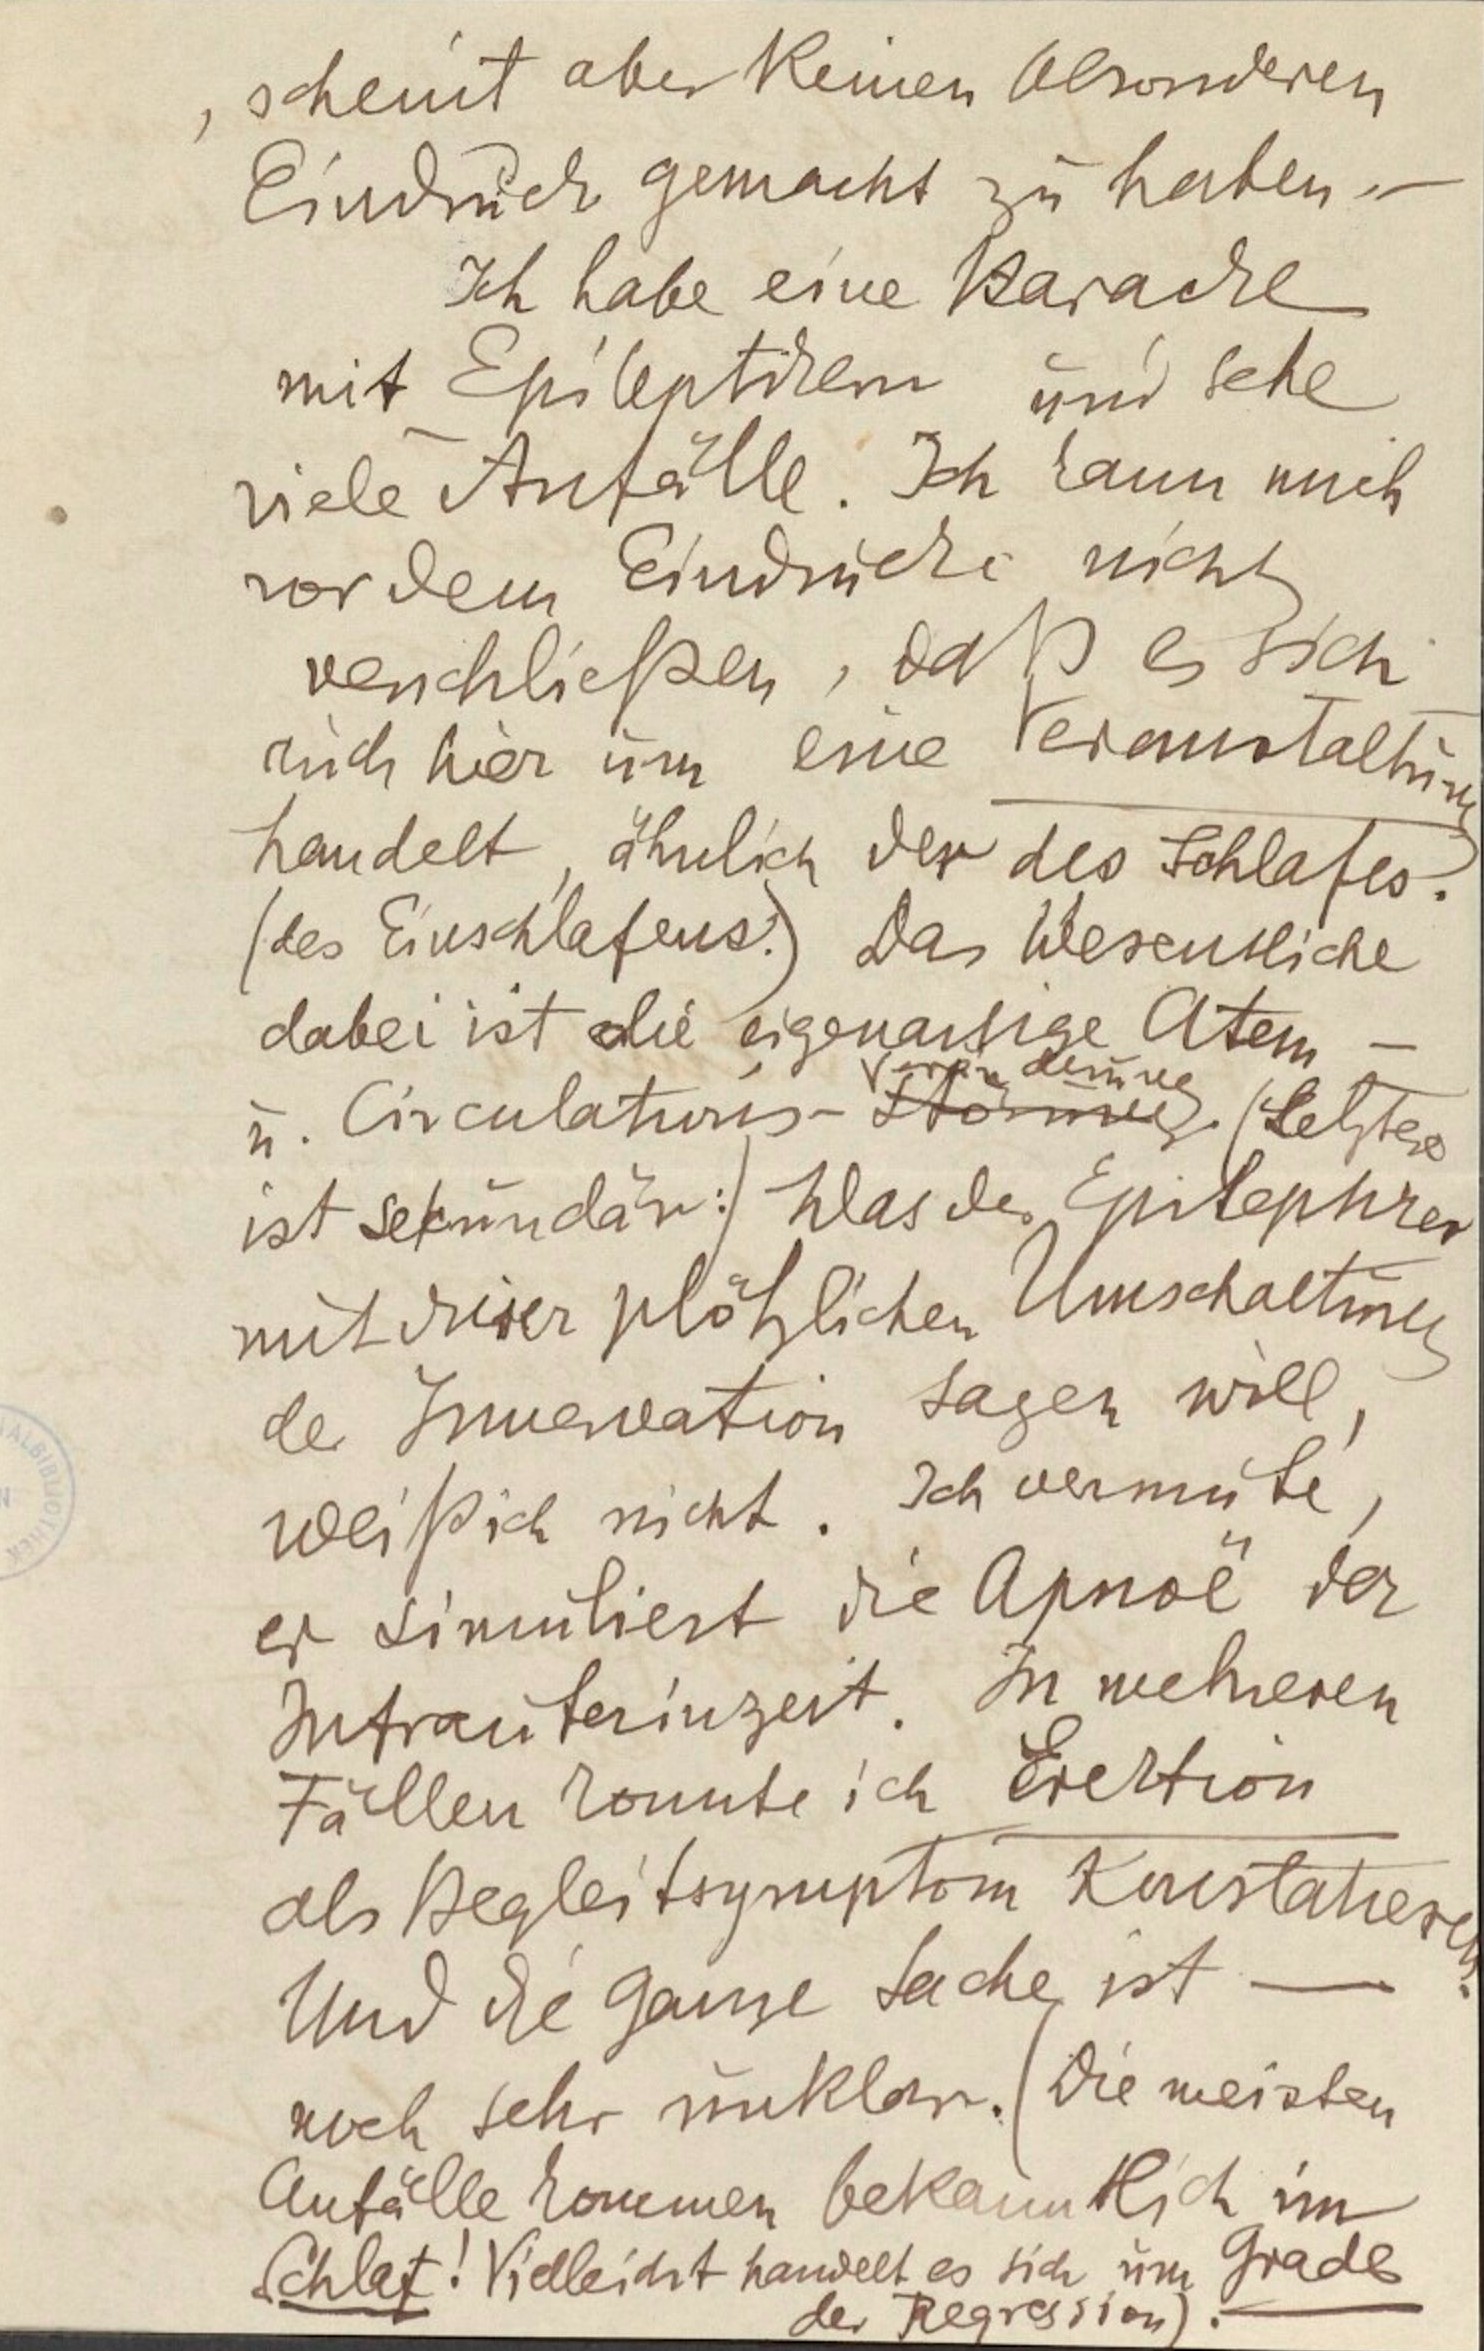 , scheint aber keinen besonderen
Eindruck gemacht zu haben. –
Ich habe eine Baracke
mit Epileptikern und sehe
viele Anfälle. Ich kann mich
vor dem Eindrucke nicht
verschließen, daß es sich
auch hier um eine Veranstaltung
handelt, ähnlich der des Schlafes.
(des Einschlafens:) Das Wesentliche
dabei ist die eigenartige Atem –
Veränderung
u. Circulations- Störung. (Letztere
ist sekundär:) Was der Epileptiker
mit dieser plötzlichen Umschaltung
der Innervation sagen will,
weiß ich nicht. Ich vermute,
er simuliert die Apnoë der
Intrauterinzeit. In mehreren
Fällen konnte ich Erektion
als Begleitsymptom Konstatieren.
Und die ganze Sache ist —
noch sehr unklar. (Die meisten
Anfälle kommen bekanntlich im
Schlaf! Vielleicht handelt es sich um Grade
der Regression).